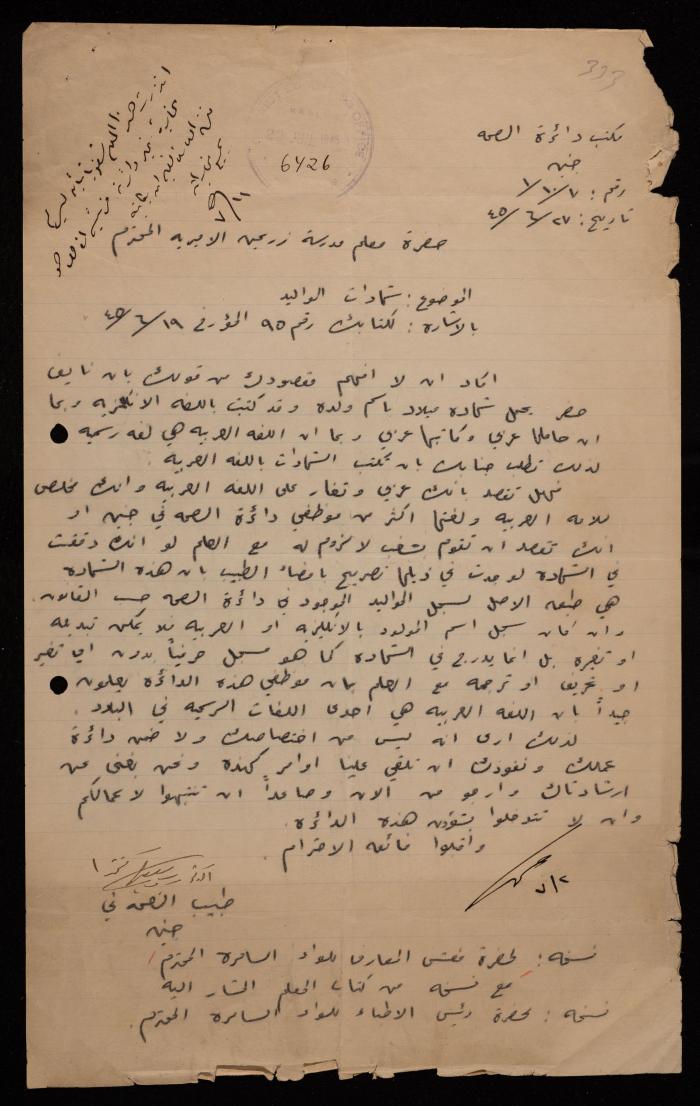 333
6426
مكتب دائرة الصحه
جنين
رقم: ١/١٠/٧
تاريخ: ٢٧/٦/٤٥
حضرة معلم مدرسة زرعين الاميريه المحترم
الموضوع: شهادات المواليد
بالاشاره: لكتابك رقم ٩٥ المؤرخ ١٩/٦/٤٥
اكاد ان لا افهم مقصودك من قولك بان نايف
خضر يحمل شهادة ميلاد باسم ولده وقد كتبت باللغه الانكليزيه وبما
ان حاملها عربي وكاتبها عربي وبما ان اللغه العربيه هي لغه رسميه
لذلك تطلب جنابك بان تكتب الشهادات باللغه العربيه.
فهل تقصد بانك عربي وتغار على اللغه العربيه وانك مخلص
للامه العربيه ولغتها اكثر من موظفي دائرة الصحه في جنين او
انك تقصد ان تقوم بشغب لا لزوم له مع العلم لو انك دققت
في الشهادة لوجدت في ذيلها تصريح بامضاء الطبيب بان هذه الشهادة
هي طبقه الاصل لسجل المواليد الموجود في دائرة الصحه حسب القانون
وان كان سجل اسم المولود بالانكليزيه او العربيه فلا يمكن تبديله
او تغيره بل انما يدرج في الشهادة كما هو مسجل حرفياً بدون اي تغير
او تحريف او ترجمه مع العلم بان موظفي هذه الدائرة يعلمون
جيداً بان اللغه العربيه هي احدى اللغات الرسميه في البلاد.
لذلك ارى انه ليس من اختصاصك ولا ضمن دائرة
عملك ونفوذك ان تلقي علينا اوامر كهذه ونحن بغنى عن
ارشاداتك وارجو من الان وصاعداً ان تنتبهوا لاعمالكم
وان لا تتدخلوا بشؤون هذه الدائرة.
واقبلوا فائقه الاحترام
طبيب الصحه في
جنين
نسخه: لحضرة مفتش المعارف للواء السامره المحترم
مع نسخه من كتاب المعلم المشار اليه
نسخه: لحضرة رئيس الاطباء للواء السامره المحترم.